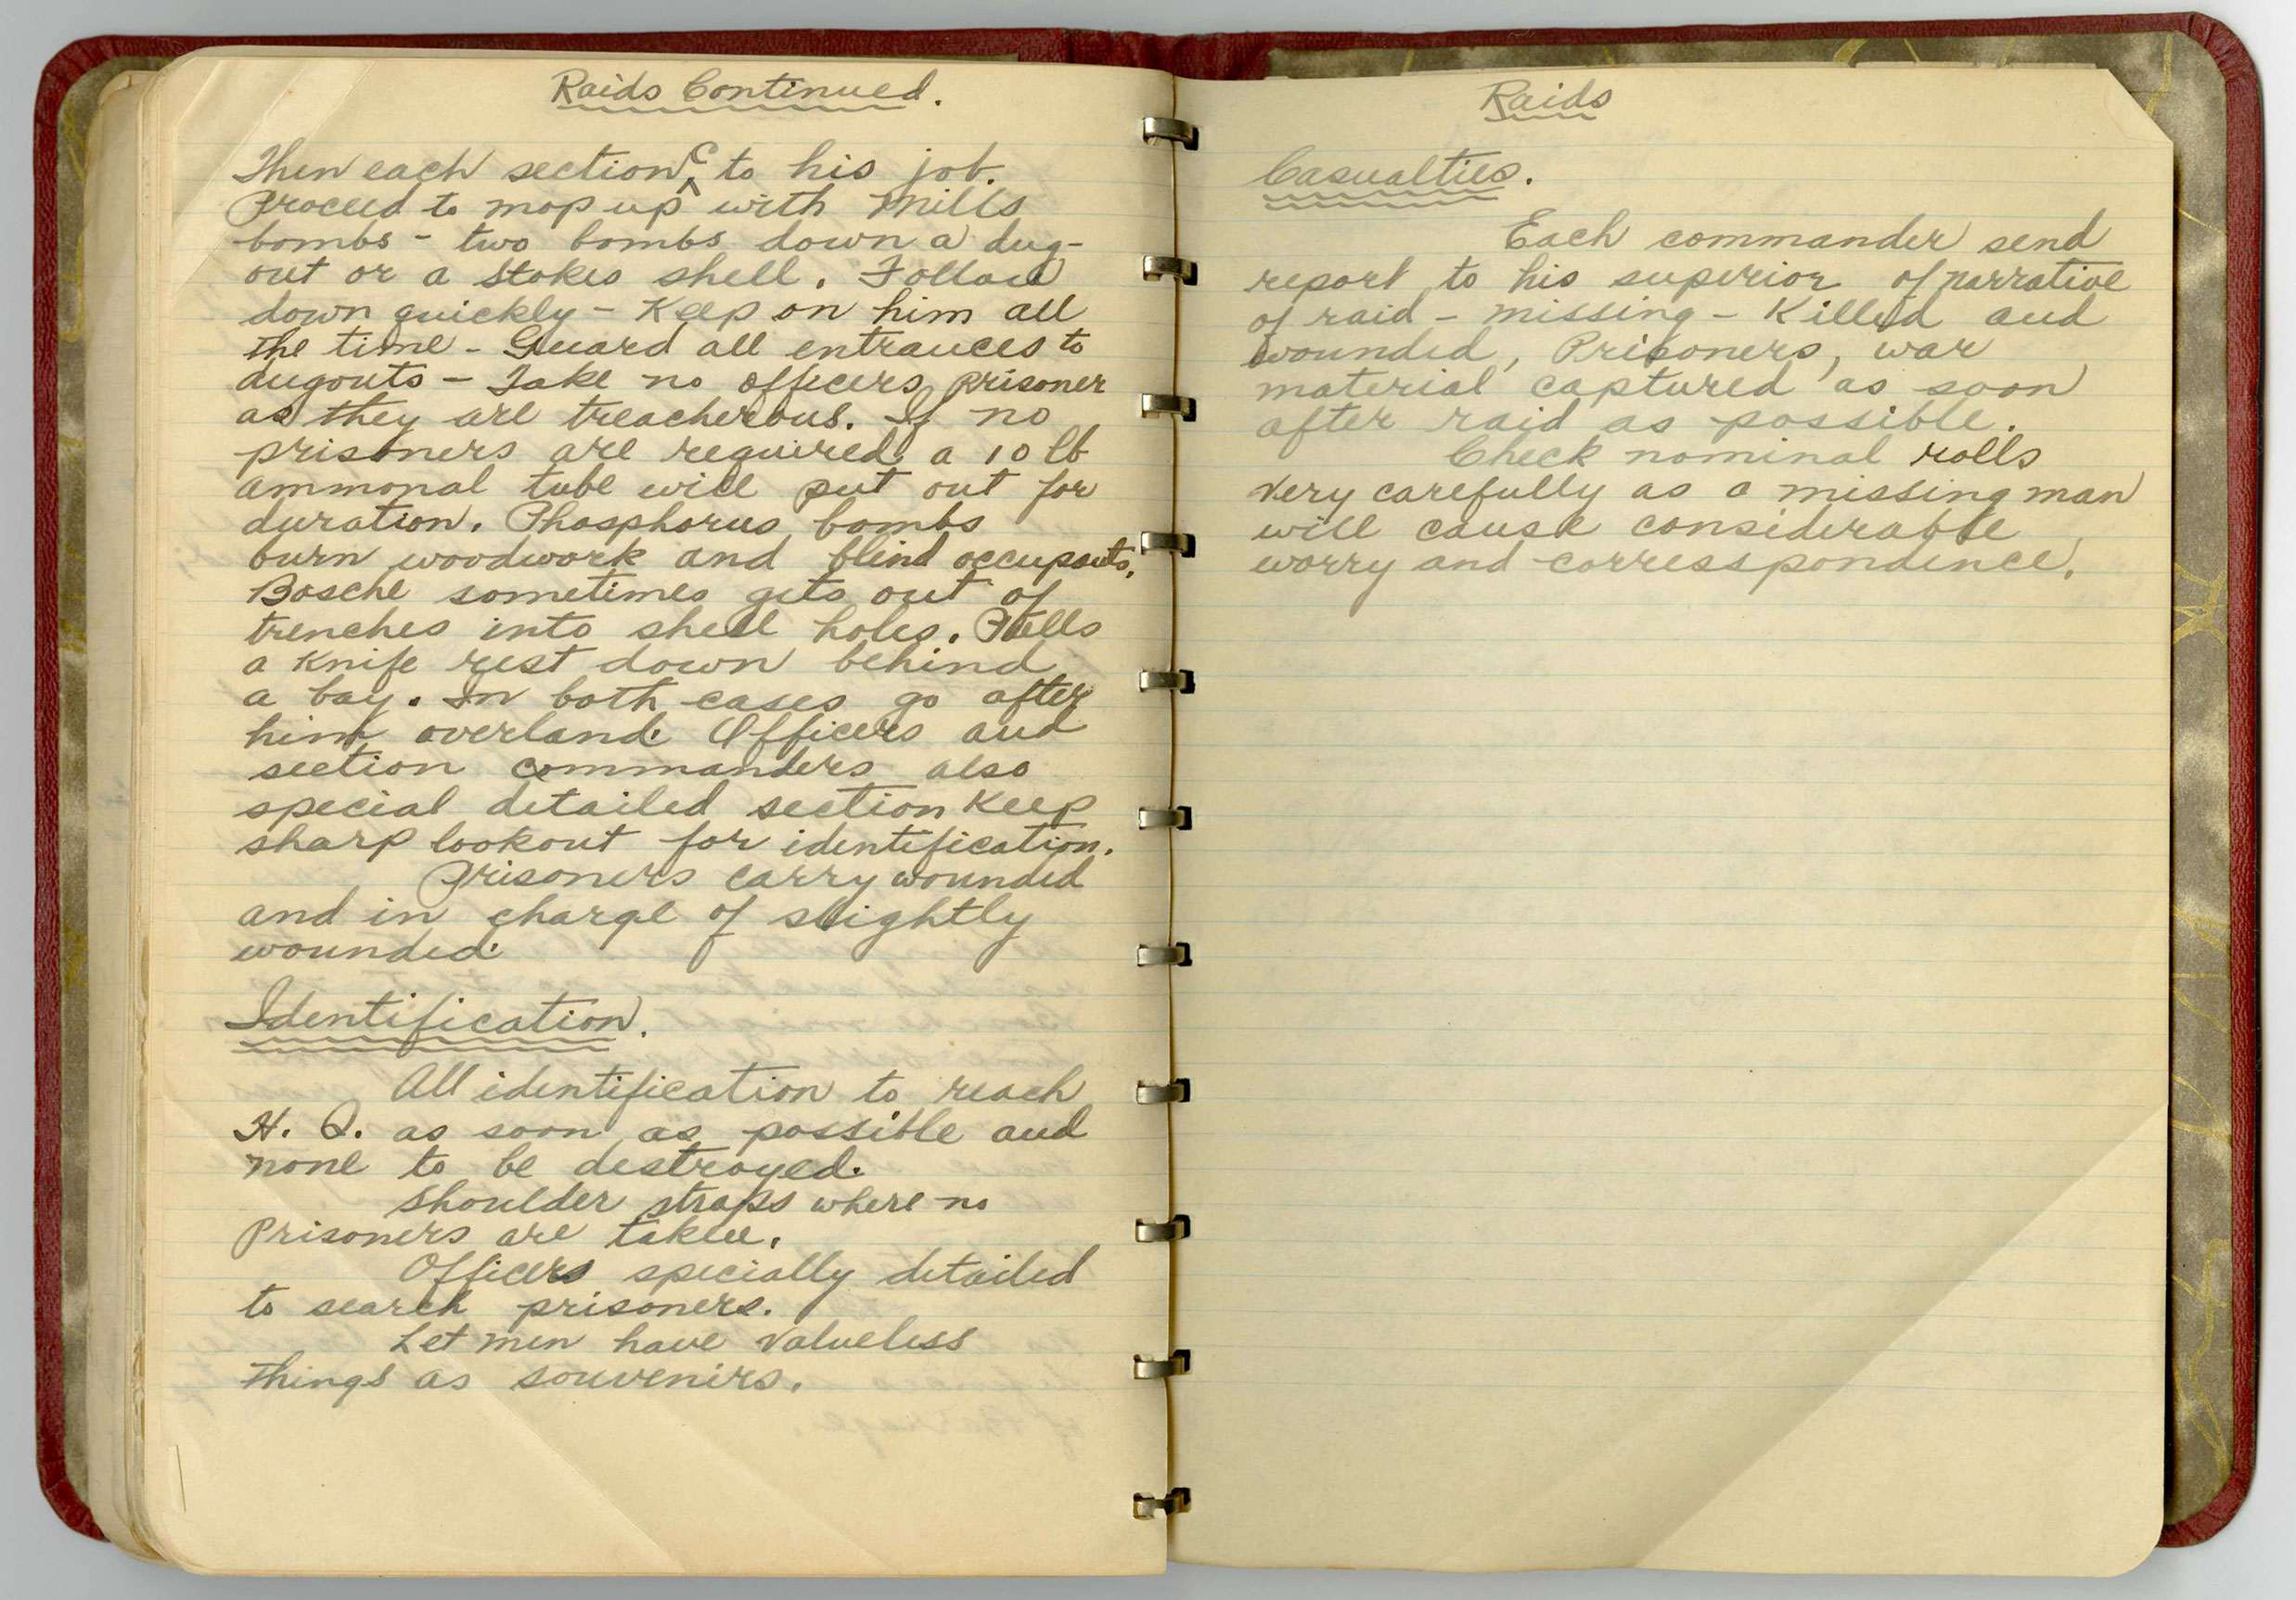 Raids Continued.
Then each section C to his job.
Proceed to mop up with Mills
bombs - two bombs down a dug-
out or a Stokes shell. Follow
down quickly - Keep on him all
the time - Guard all entrances to
dugouts - Take no officers prisoner
as they are treacherous. If no
prisoners are required a 10 lb
ammonal tube will put out for
duration. Phosphorus bombs
burn woodwork and blind occupants.
Bosche sometimes gets out of
trenches into shell holes. Pulls
a Knife rest down behind
a bay. In both cases go after
him overland. Officers and
section commanders also
special detailed section Keep
sharp lookout for identification.
Prisoners carry wounded
and in charge of slightly
wounded.
Identification.
All identification to reach
H. Q. as soon as possible and
none to be destroyed.
Shoulder straps where no
Prisoners are taken.
Officers specially detailed
to search prisoners.
Let men have valueless
things as souvenirs.
Raids
Casualties.
Each commander send
report to his superior of narrative
of raid - missing - Killed and
wounded, Prisoners, war
material captured as soon
after raid as possible.
Check nominal rolls
very carefully as a missing man
will cause considerable
worry and corresspondence.